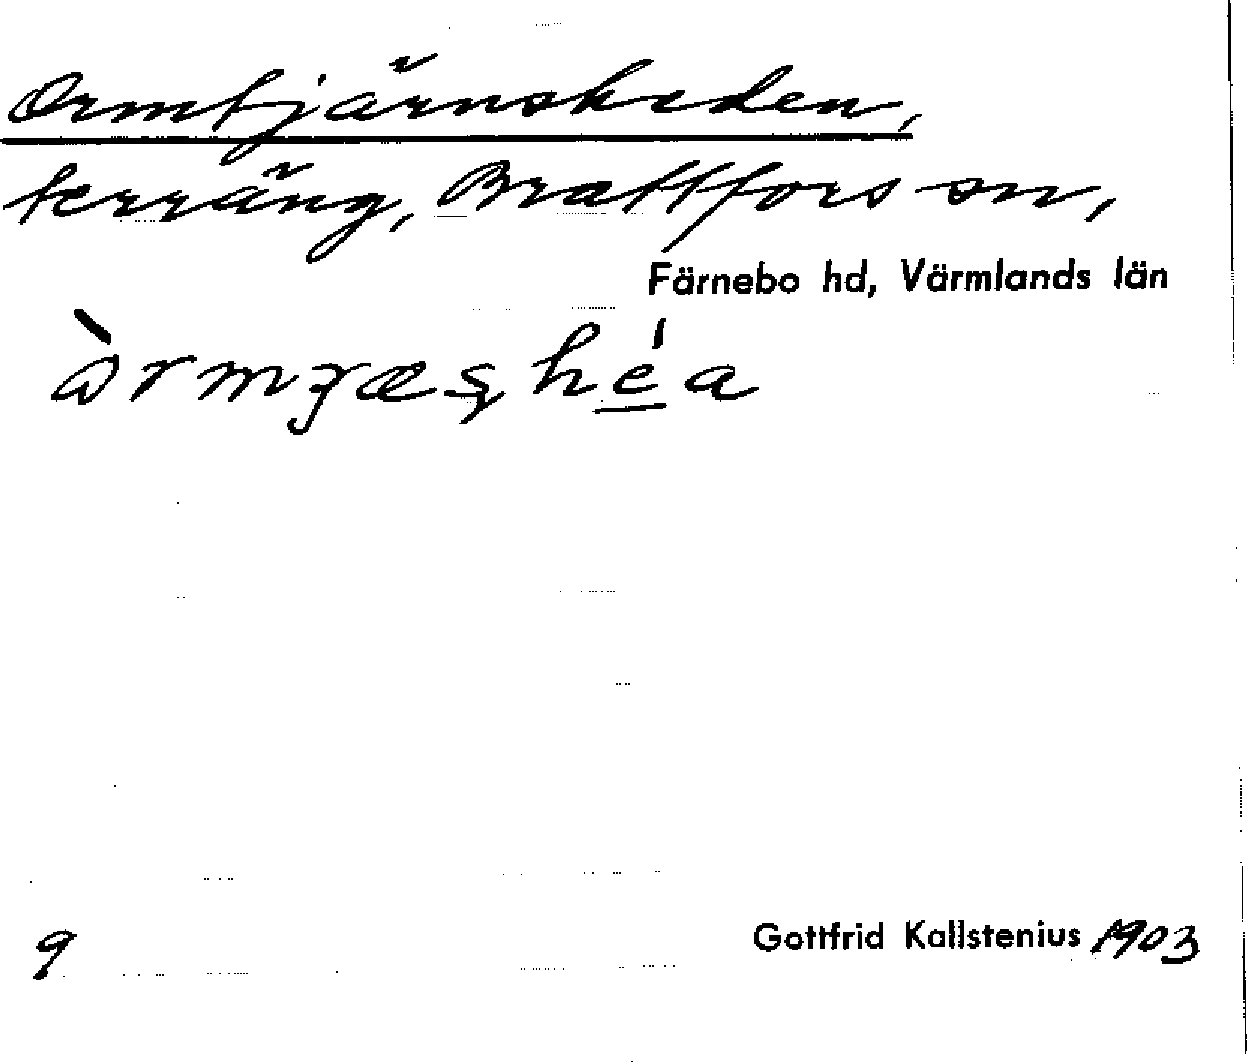 Ormtjärnsheden,
terräng, Brattfors sn,
Färnebo hd, Värmlands län
òrmȝæșhéa
Gottfrid Kallstenius 1903
9